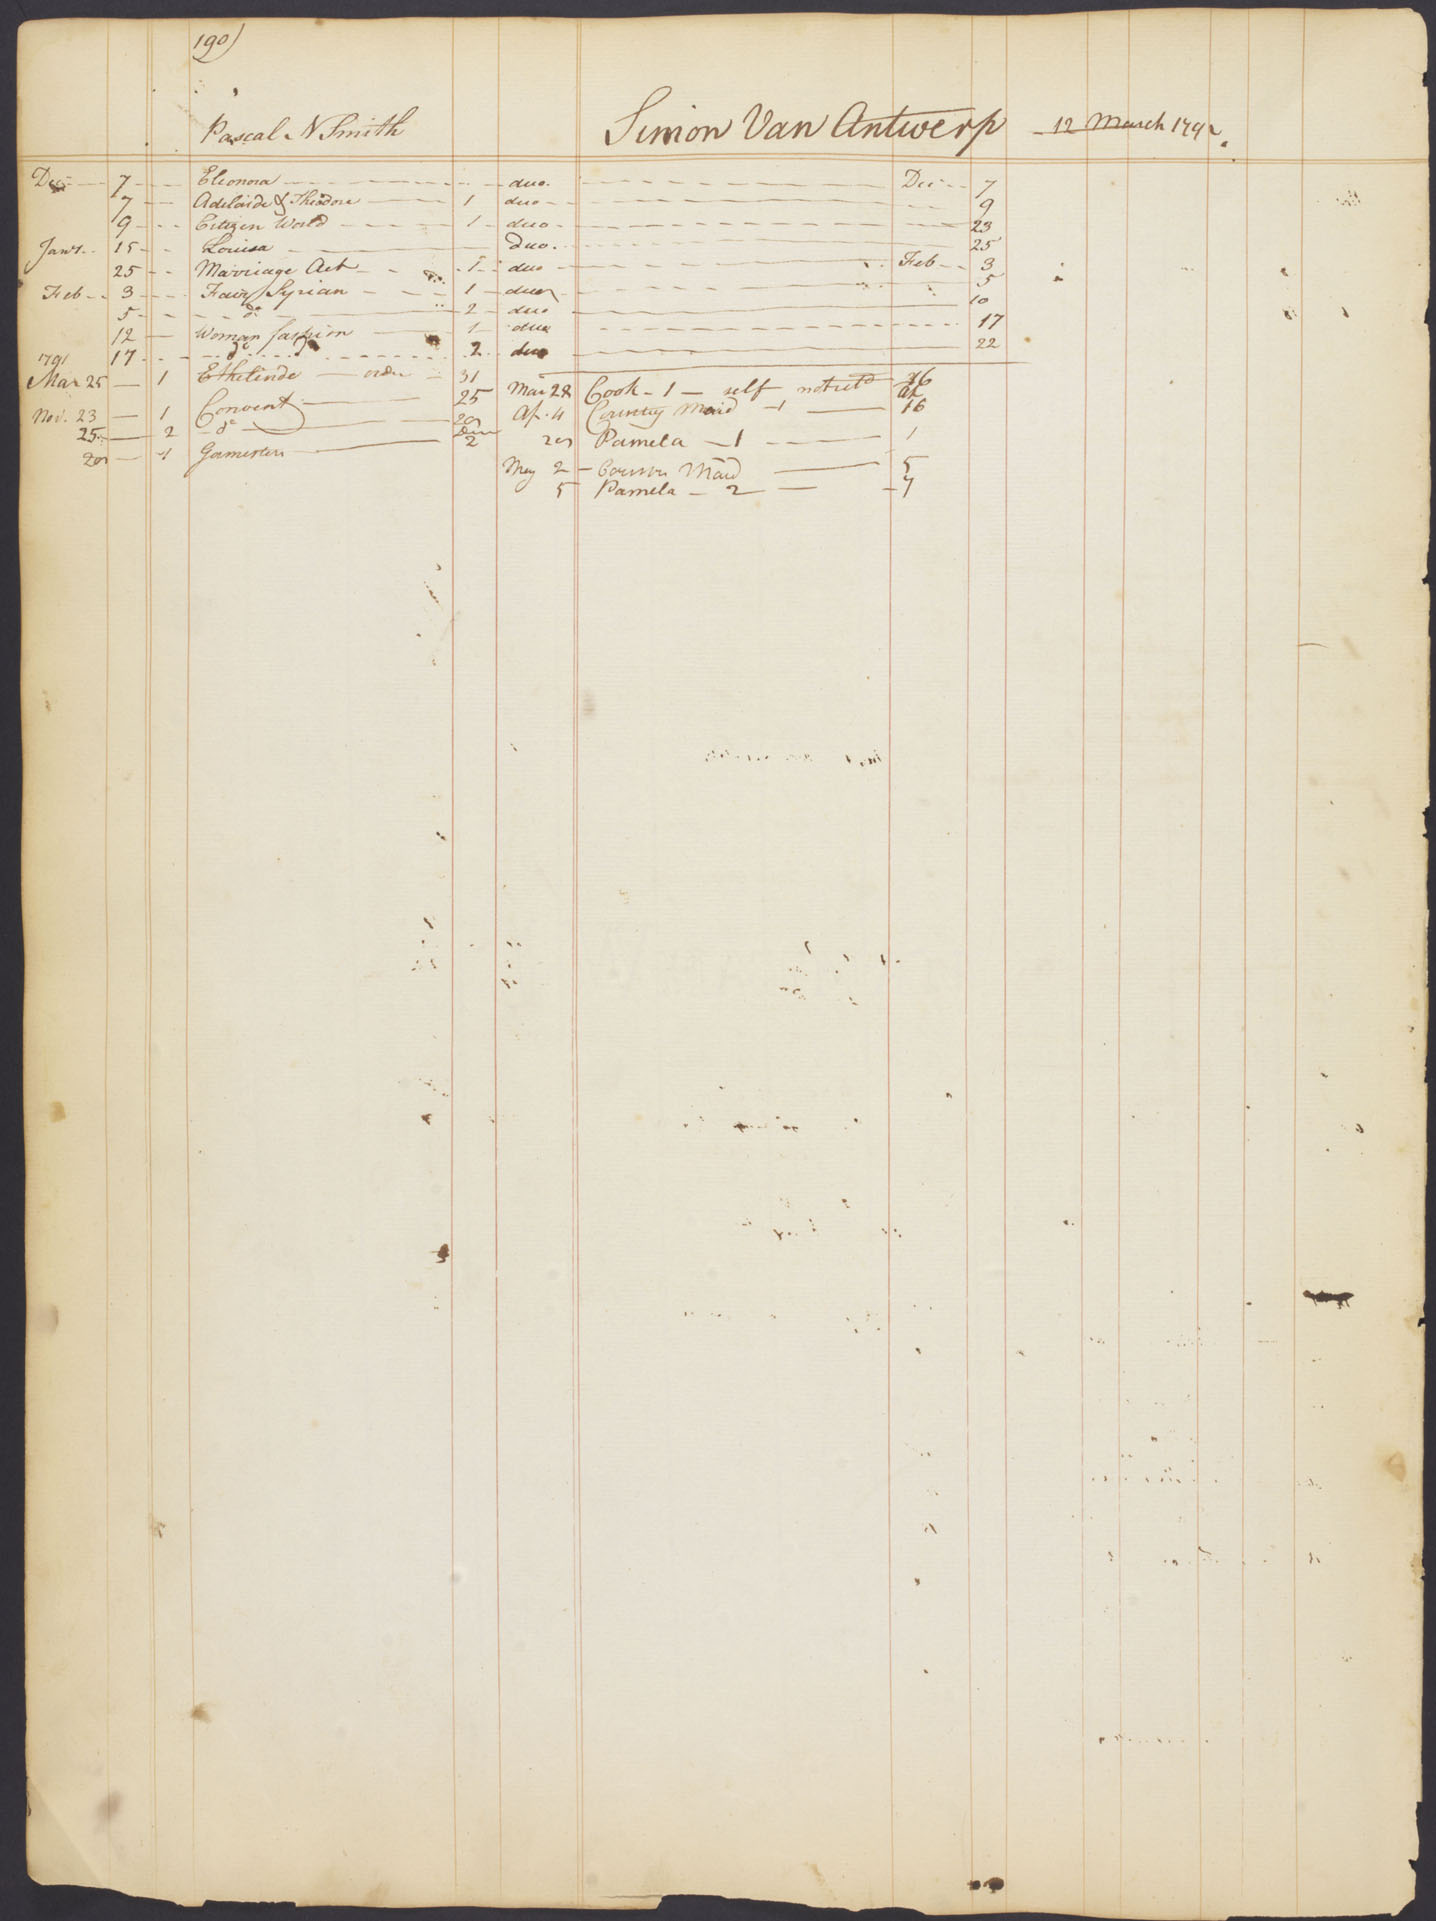 190)
Pascal N Smith Simon Van Antwerp - 12 March 1792.
Dec 7 Eleonora duo. Dec 7
7 Adelaide & Theodore 1 duo 9
9 Citizen World 1 duo 23
Jany. 15 Louisa Duo. 25
25 Marriage Act 1 duo Feb 3
Feb 3 Fair Syrian 1 duo 5
5 do 2 duo 10
12 Woman fashion 1 duo 17
17 do 2 duo 22
1791
Mar 25 1 Ethelinde order 31 Mar 28 Cook - 1 - self
Nov. 23 1 Convent 25 Ap. 4 Country Maid - 1 16
25 2 do 29 Pamela - 1 1
29 1 Gamesters 2 May 2 Maid 5
5 Pamela - 2 - 7